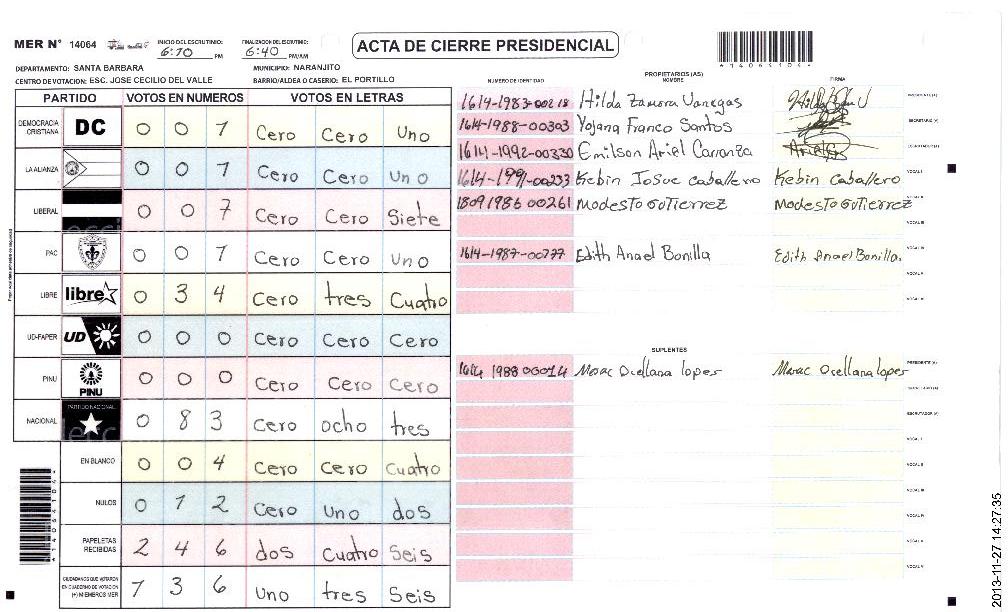 MER N° 14064
INICIO DEL ESCRUTINIO: 6:10 PM
FINALIZACION DEL ESCRUTINIO: 6:40 PM/AM
ACTA DE CIERRE PRESIDENCIAL
DEPARTAMENTO: SANTA BARBARA MUNICIPIO: NARANJITO
CENTRO DE VOTACION: ESC. JOSE CECILIO DEL VALLE BARRIO/ALDEA O CASERIO: EL PORTILLO
PARTIDO VOTOS EN NUMEROS VOTOS EN LETRAS
DEMOCRACIA CRISTIANA DC 0 0 1 Cero Cero Uno
LA ALIANZA 0 0 1 Cero Cero Uno
LIBERAL 0 0 7 Cero Cero Siete
PAC 0 0 1 Cero Cero Uno
LIBRE libre 0 3 4 Cero tres Cuatro
UD-FAPER UD 0 0 0 Cero Cero Cero
PINU PINU 0 0 0 Cero Cero Cero
NACIONAL PARTIDO NACIONAL 0 8 3 Cero ocho tres
EN BLANCO 0 0 4 Cero Cero Cuatro
NULOS 0 1 2 Cero uno dos
PAPELETAS RECIBIDAS 2 4 6 dos Cuatro Seis
CIUDADANOS QUE VOTARON EN CUADERNO DE VOTACION (+) MIEMBROS MER 1 3 6 uno tres Seis
PROPIETARIOS (AS)
NUMERO DE IDENTIDAD NOMBRE FIRMA
1614-1983-00218 Hilda Zamora Vanegas PRESIDENTE (A)
1614-1988-00303 Yojana Franco Santos SECRETARIO (A)
1614-1992-00330 Emilson Ariel Carranza ESCRUTADOR (A)
Kebin Josue Caballero Kebin Caballero VOCAL I
1809 1986 00261 Modesto Gutierrez Modesto Gutierrez VOCAL II
VOCAL III
1614-1987-00777 Edith Anael Bonilla Edith Anael Bonilla. VOCAL IV
VOCAL V
SUPLENTES
1614 1988 00014 Orellana lopez Orellana lopez PRESIDENTE (A)
SECRETARIO (A)
ESCRUTADOR (A)
VOCAL I
VOCAL II
VOCAL III
VOCAL IV
VOCAL V
2013-11-27 14:27:35